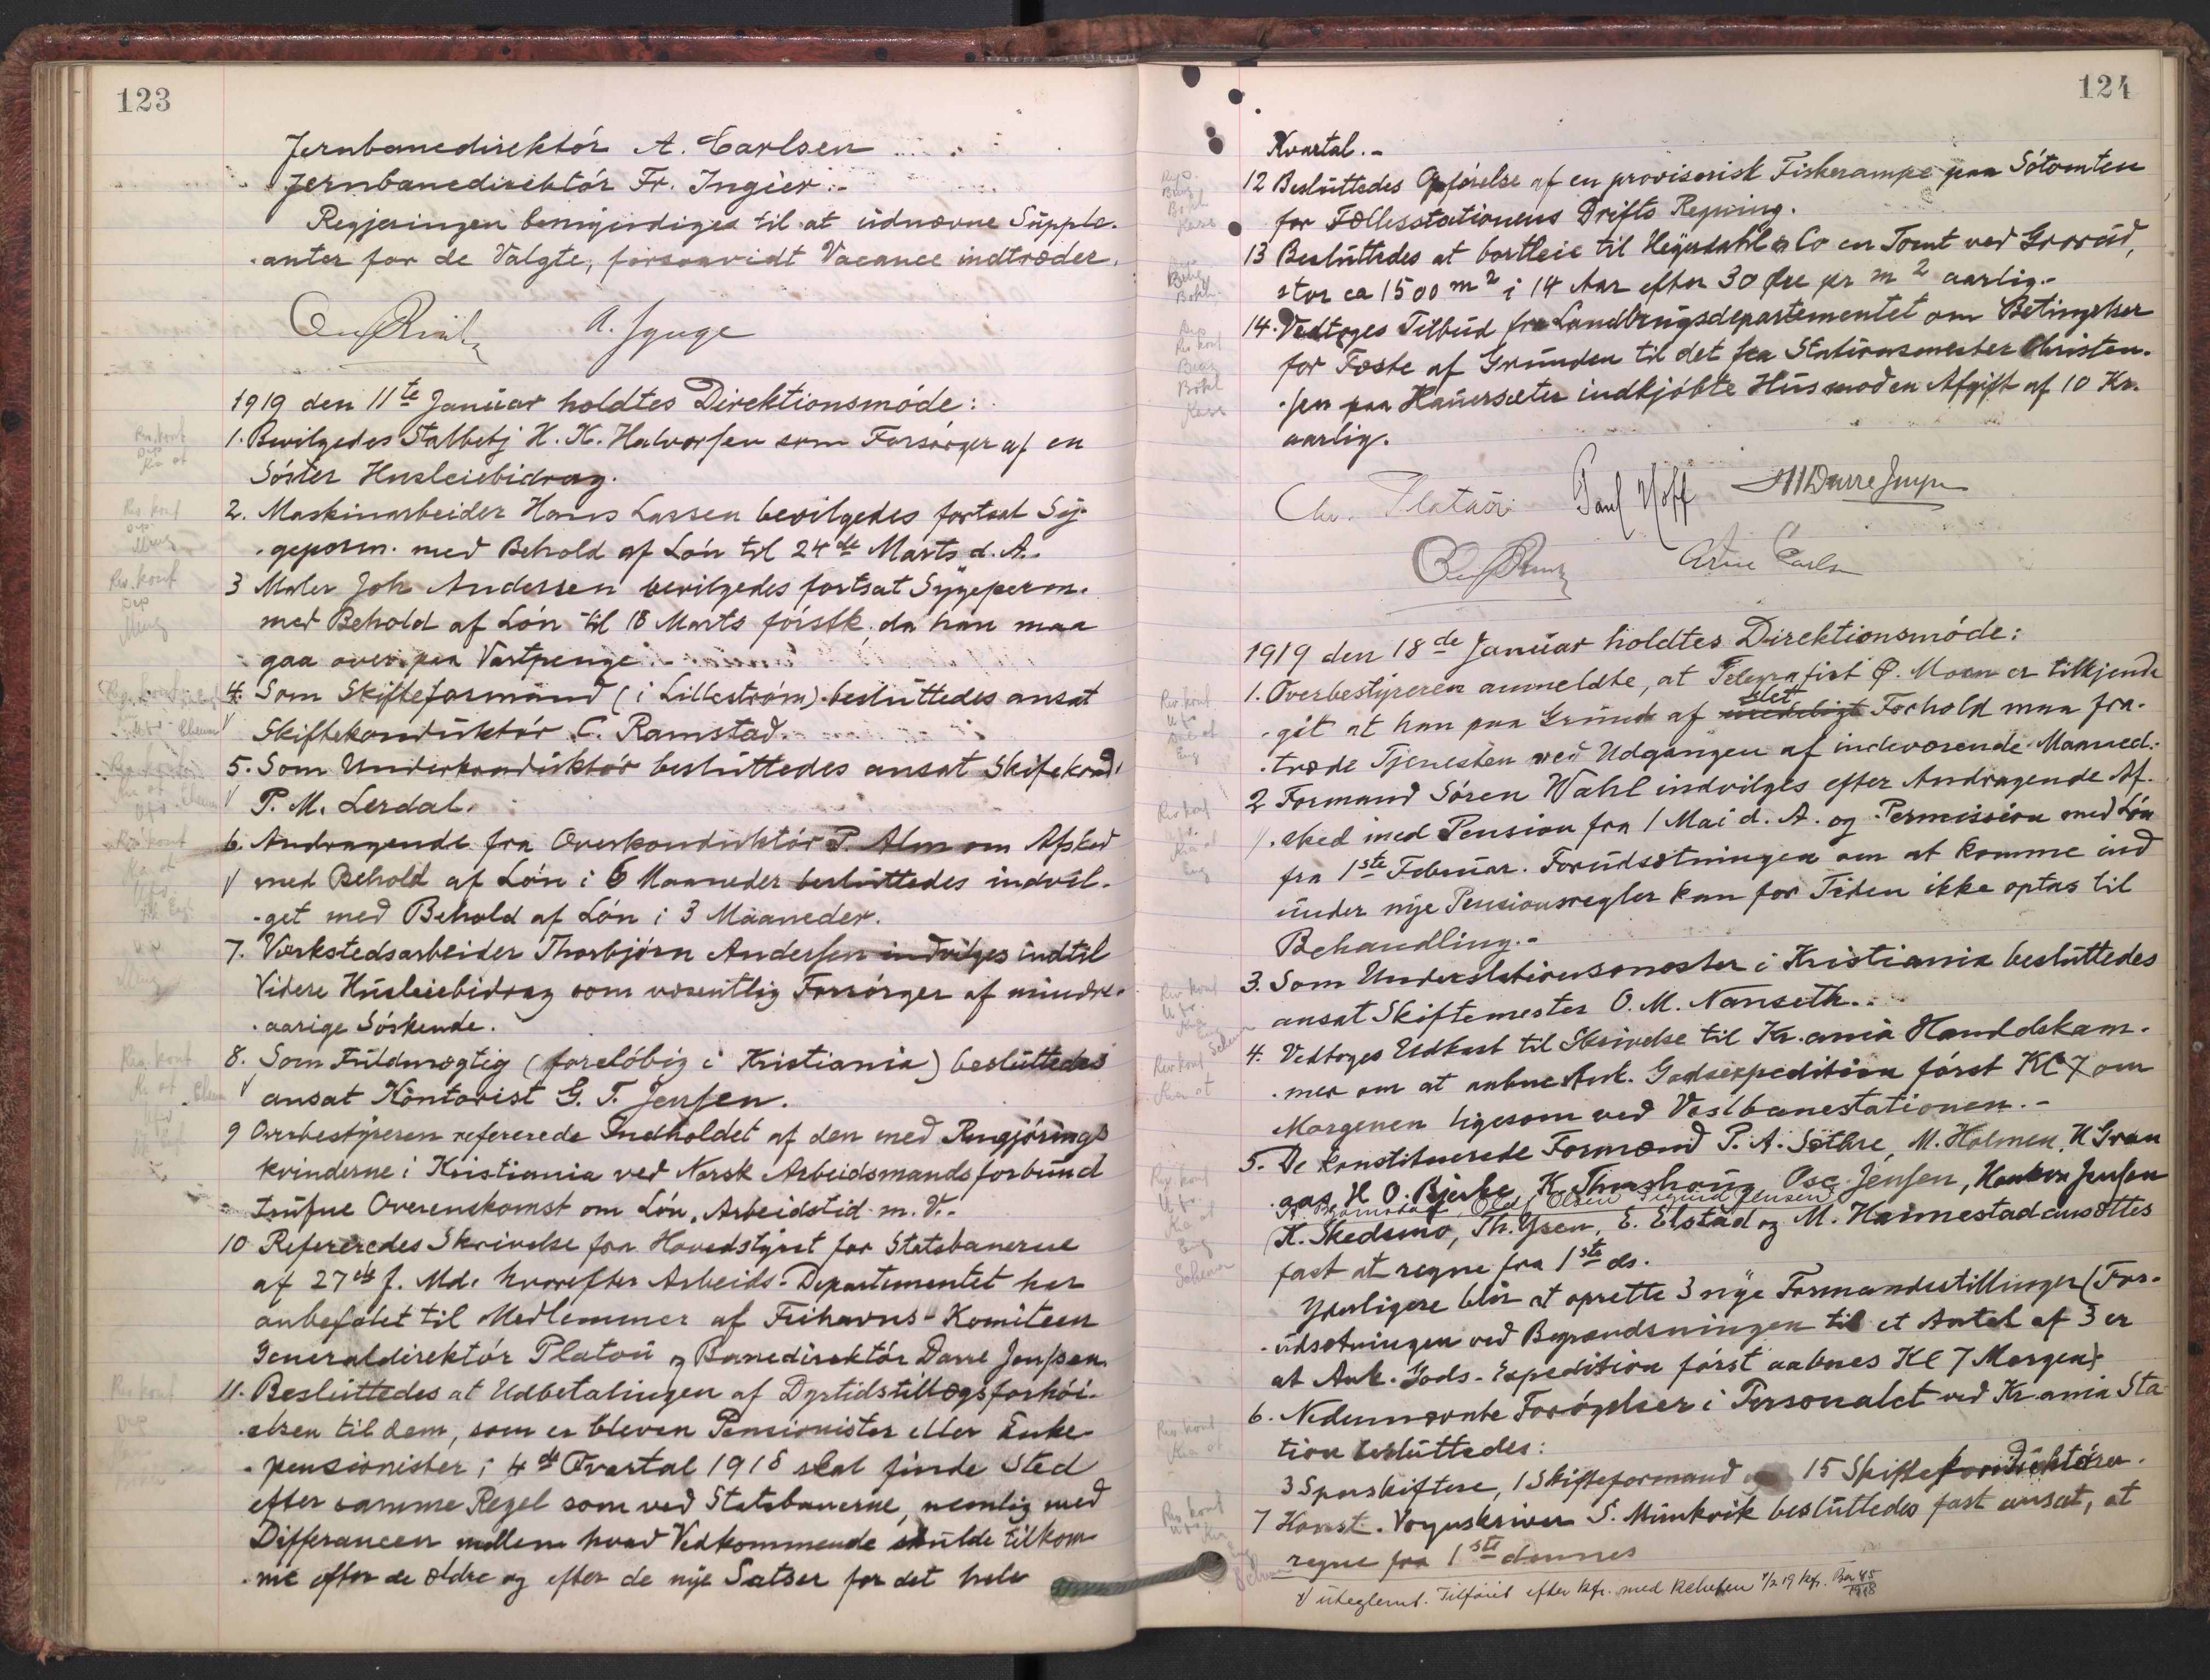 123
Jernbanedirektör A. Carlsen
Jernbanedirektör Fr. Ingier.-
Regjeringen bemyndiges til at udnævne Supple-
anter for de Valgte, forsaavidt Vacance indtræder.
1919 den 11te Januar holdtes Direktionsmöde:
1. Bevilgedes Stalbetj H. K. Halvorsen som Forsörger af en
Söster Husleiebidrag.
2. Maskinarbeider Hans Lassen bevilgedes fortsat Sy-
geperm. med Behold af Lön til 24de Marts d. A.
3 Maler Joh Andersen bevilgedes fortsat Sygeperm.
med Behold af Lön til 18 Marts förstk. da han maa
gaa over paa Vartpenge.-
4. Som Skifteformand (i Lilleström) besluttedes ansat
Skiftekonduktör C. Ramstad.
5. Som Underkonduktör besluttedes ansat Skiftekond.
P. M. Lerdal.
6. Andragende fra Overkonduktör P. Alm om Afsked
med Behold af Lön i 6 Maaneder besluttedes indvil-
get med Behold af Lön i 3 Maaneder.
7. Værkstedsarbeider Thorbjörn Andersen indvilges indtil
Videre Husleiebidrag som væsentlig Forsörger af mindre-
aarige Söskende.
8. Som Fuldmægtig (forelöbig i Kristiania) besluttedes
ansat Kontorist G. T. Jensen.
9 Overbestyreren refererede Indholdet af den med Rengjörings
kvinderne i Kristiania ved Norsk Arbeidsmandsforbund
trufne Overenskomst om Lön, Arbeidstid m. V.-
10 Refereredes Skrivelse fra Hovedstyret for Statsbanerne
af 27de f. Md. hvorefter Arbeids-Departementet har
anbefalet til Medlemmer af Frihavns-Komiteen
Generaldirektör Platou og Banedirektör Darre Jenssen.
11. Besluttedes at Udbetalingen af Dyrtidstillægsforhöi-
elsen til dem, som er bleven Pensionister eller Enke-
pensionister i 4de Qvartal 1918 skal finde Sted
efter samme Regel som ved Statsbanerne, nemlig med
Differancen mellem hvad Vedkommende skulde tilkom-
me efter de ældre og efter de nye Satser for det hele
124
Kvartal.-
12 Besluttedes Opförelse af en provisorisk Fiskerampe paa Sötomten
for Fællesstationens Drifts Regning.
13 Besluttedes at bortleie til Heyerdahl & Co en Tomt ved Grorud,
stor ca 1500 m2 i 14 Aar efter 30 Öre pr m2 aarlig.-
14. Vedtoges Tilbud fra Landbrugsdepartementet om Betingelser
for Fæste af Grunden til det fra Stationsmester Christen-
sen paa Hauersæter indkjöbte Hus mod en Afgift af 10 Kr.
aarlig.
Chr. Platou Paul Hoff
Arne Carlsen
1919 den 18de Januar holdtes Direktionsmöde:
1. Overbestyreren anmeldte, at Telegrafist Ø. Moen er tilkjende
git at han paa Grund af slet Forhold maa fra-
træde Tjenesten ved Udgangen af indeværende Maaned.
2 Formand Sören Wahl indvilges efter Andragende Af-
sked med Pension fra 1 Mai d. A. og Permission med Lön
fra 1ste Februar. Forudsætningen om at komme ind
under nye Pensionsregler kan for Tiden ikke optas til
Behandling.-
3. Som Understationsmester i Kristiania besluttedes
ansat Skiftemester O. M. Nanseth..
4. Vedtoges Udkast til Skrivelse til Kr.ania Handelskam-
mer om at aabne Ank. Godsexpedition först Kl 7 om
Morgenen ligesom ved Vestbanestationen.-
5. De konstituerede Formænd P. A. Sæthre, M. Holmen, K Gran
aas, H. O. Bjerke, K. Thorshoug, Osc. Jensen, Haakon Jensen
Olaf Olsen Sigurd Jensen
K. Skedsmo, Th. Ysen, E. Elstad og M. Haimestad ansættes
fast at regne fra 1ste ds.
Yderligere blir at oprette 3 nye Formandsstillinger (For-
udsætningen ved Begrændsningen til et Antal af 3 er
at Ank. Gods-Expedition först aabnes Kl 7 Morgen).
6. Nedennævnte Forögelser i Personalet ved Kr.ania Sta-
tion besluttedes:
3 Sporskiftere, 1 Skifteformand 15 Skiftekonduktörer.
7 Konst. Vognskriver S. Munkvik besluttedes fast ansat, at
regne fra 1ste dennes
Tilföiet efter kfr. med